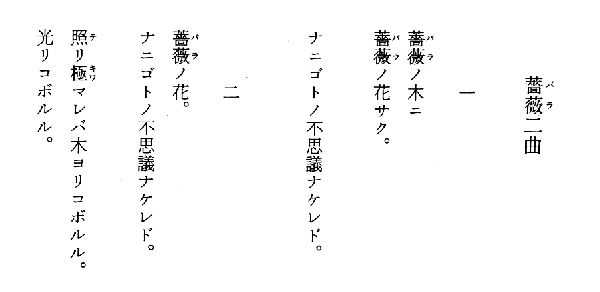 薔薇二曲
一
薔薇ノ木ニ
薔薇ノ花サク。
ナニゴトノ不思議ナケレド。
二
薔薇ノ花。
ナニゴトノ不思議ナケレド。
照リ極マレバ木ヨリコボルル。
光リコボルル。